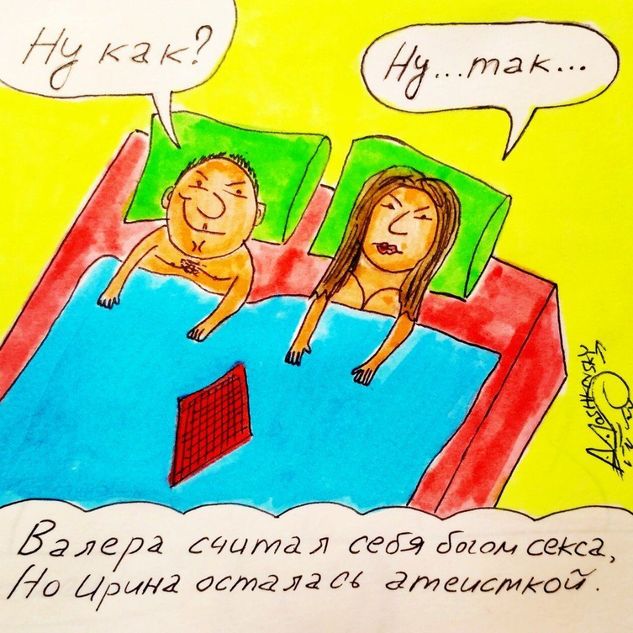 Ну как?
Ну...так...
Валера считал себя богом секса,
Но Ирина осталась атеисткой.